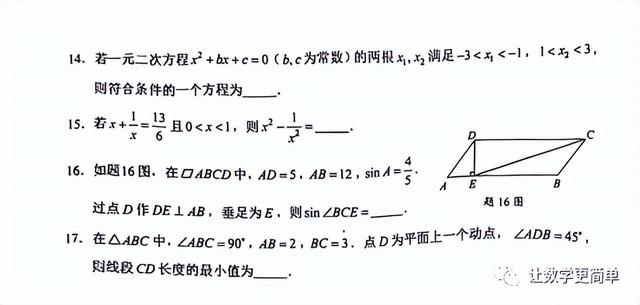 14. 若一元二次方程 x²+bx+c=0（b,c为常数）的两根 x₁,x₂ 满足 -3<x₁<-1，1<x₂<3，
则符合条件的一个方程为_____.
15. 若 x+1/x=13/6 且 0<x<1，则 x²-1/x²=_____.
16. 如题16图，在▱ABCD中，AD=5，AB=12，sin A=4/5.
过点D作DE⊥AB，垂足为E，则 sin∠BCE=_____.
D
C
A
E
B
题16图
17. 在△ABC中，∠ABC=90°，AB=2，BC=3. 点D为平面上一个动点，∠ADB=45°，
则线段CD长度的最小值为_____.
让数学更简单